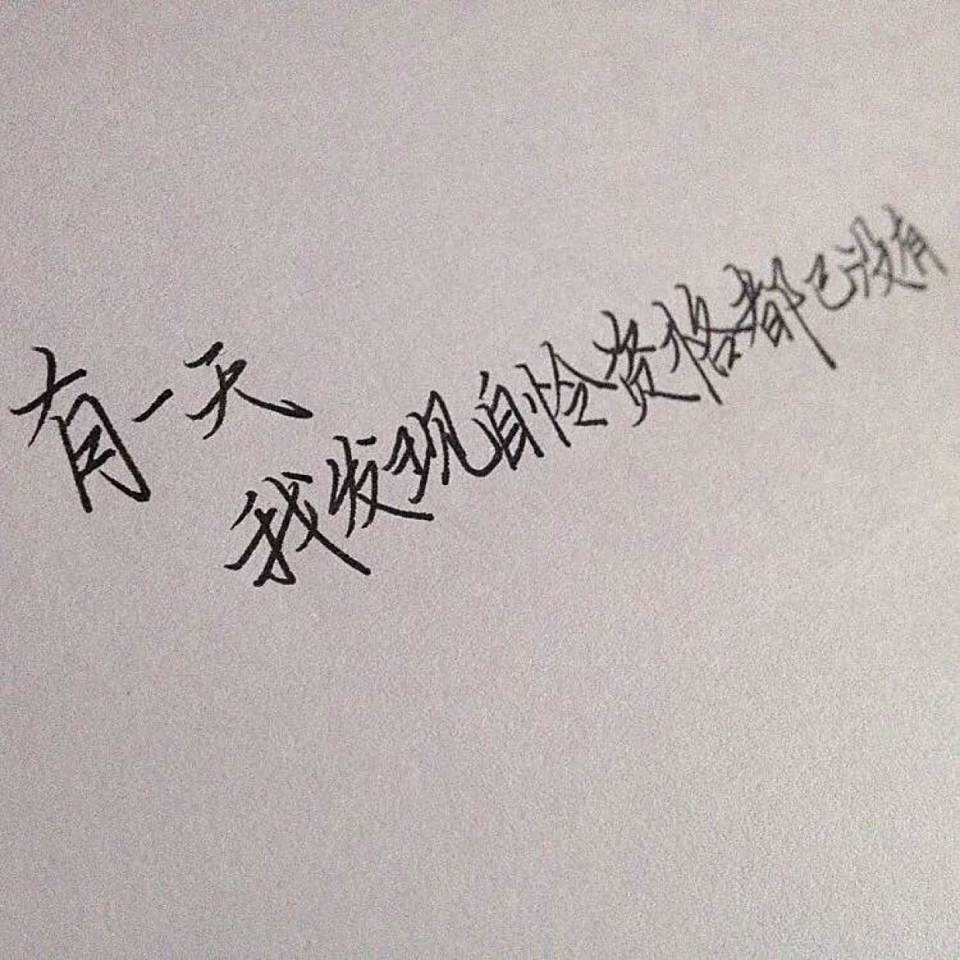 有一天
我发现自怜资格都已没有